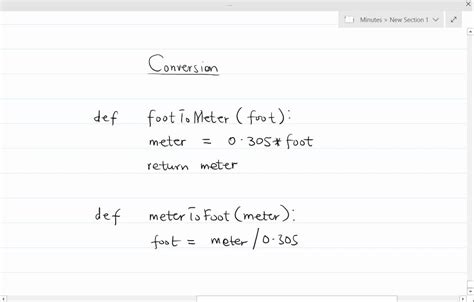 Minutes > New Section 1
Conversion
def footToMeter (foot):
meter = 0.305* foot
return meter
def meterToFoot (meter):
foot = meter / 0.305